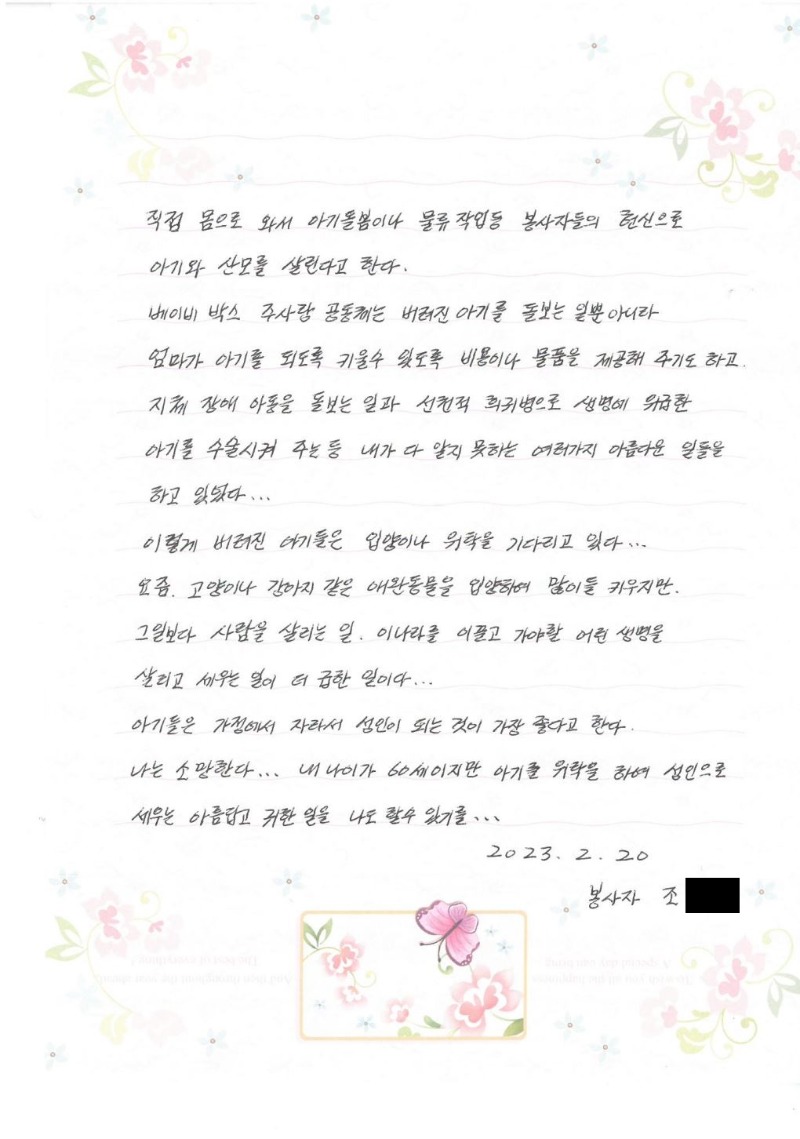 직접 몸으로 와서 아기돌봄이나 물류작업등 봉사자들의 헌신으로
아기와 산모를 살린다고 한다.
베이비 박스 주사랑 공동체는 버려진 아기를 돌보는 일뿐 아니라
엄마가 아기를 되도록 키울수 있도록 비용이나 물품을 제공해 주기도 하고.
지체 장애 아동을 돌보는 일과 선천적 희귀병으로 생명에 위급한
아기를 수술시켜 주는등 내가 다 알지 못하는 여러가지 아름다운 일들을
하고 있었다...
이렇게 버려진 아기들은 입양이나 위탁을 기다리고 있다...
요즘. 고양이나 강아지 같은 애완동물을 입양하여 많이들 키우지만.
그일보다 사람을 살리는 일. 이나라를 이끌고 가야할 어린 생명을
살리고 세우는 일이 더 급한 일이다...
아기들은 가정에서 자라서 성인이 되는 것이 가장 좋다고 한다.
나는 소망한다... 내 나이가 60세이지만 아기를 위탁을 하여 성인으로
세우는 아름답고 귀한 일을 나도 할수 있기를...
2023. 2. 20
봉사자 조